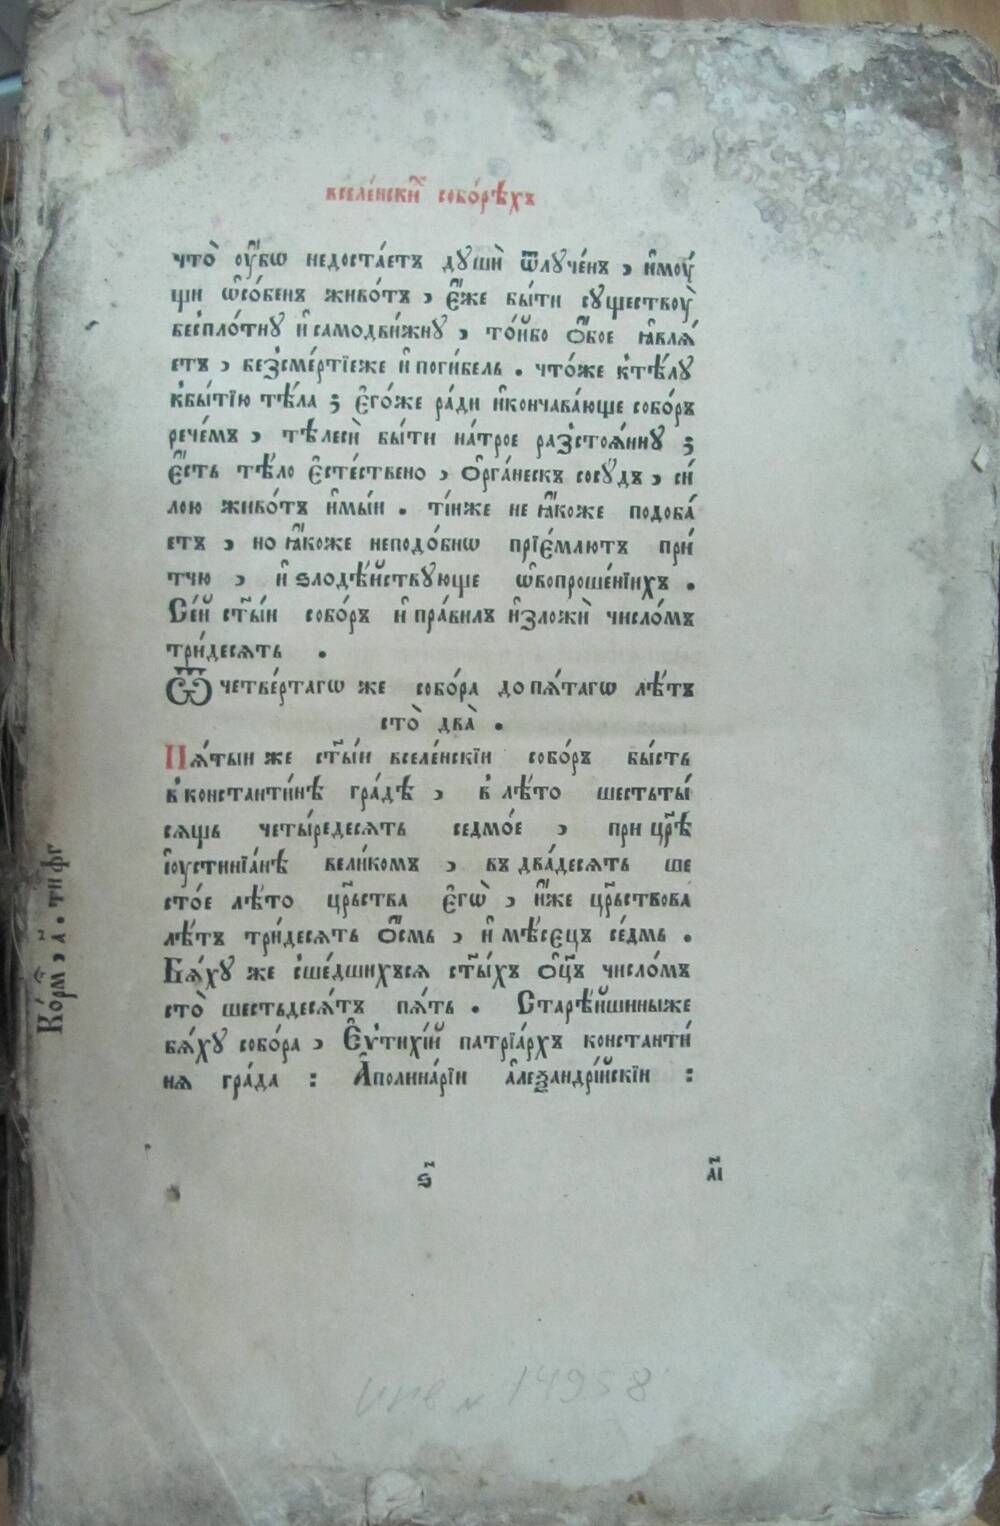 вселе́нскиⷯ҇ собо́рѣхъ
что̀ оу҆́бѡ недоста́етъ дꙋшѝ ѿлꙋче́нъ , и҆мꙋ́
щи ѡ҆со́бенъ живо́тъ , є҆́же бы́ти сꙋществоу̀
беспло́тнꙋ и҆ самодви́жнꙋ , то́йбо ѻ҆́бое ꙗ҆влѧ́
етъ , безсме́ртїеже и҆ поги́бель . что́же ктѣ́лꙋ
кбы́тїю тѣ́ла ; є҆го́же ра́ди и҆кончава́юще собо́ръ
рече́мъ , тѣлесѝ бы́ти на́трое разстоѧ́ннꙋ ;
є҆́сть тѣ́ло є҆сте́ствено , ѻ҆рга́нескъ сосꙋ́дъ , си́
лою живо́тъ и҆мы́и . ті́иже не ꙗ҆́коже подоба́
етъ , но ꙗ҆́коже неподо́бнѡ прїе́млютъ при́
тчю , и҆ ѕлодѣ́йствꙋюще ѡ҆вопроше́нїихъ .
Се́й ст҃ы́и собо́ръ и҆ пра́вилъ и҆зложѝ число́мъ
три́десѧть .
Ѿ четве́ртагѡ же собо́ра до пѧ́тагѡ лѣ́тъ
сто̀ два̀ .
Пѧ́тыи же ст҃ы́и вселе́нскїи собо́ръ бы́сть
в константи́нѣ гра́дѣ , в лѣ́то шестьты́
сѧщь четы́редесѧть седмо́е , при цр҃ѣ
і҆оустинїа́нѣ вели́комъ , въ два́десѧть ше
сто́е лѣ́то цр҃ьства є҆гѡ̀ , и҆́же цр҃ьствова
лѣ́тъ три́десѧть ѻ҆́смь , и҆ мѣ́сѧцъ се́дмь .
Бѧ́хꙋ же сше́дшихъсѧ ст҃ы́хъ ѻ҆ц҃ъ число́мъ
сто̀ шестьдесѧ́тъ пѧ́ть . Старѣ́йшиныже
бѧ́хꙋ собо́ра , Є҆ѵтихі́й патрїа́рхъ константи́
нѧ гра́да : А҆полина́рїи а҆леѯандрі́йскїи :
Ко́рмⷱ҇ , а҃ . тиѳг
ѕ҃ аі҃
инв № 14958